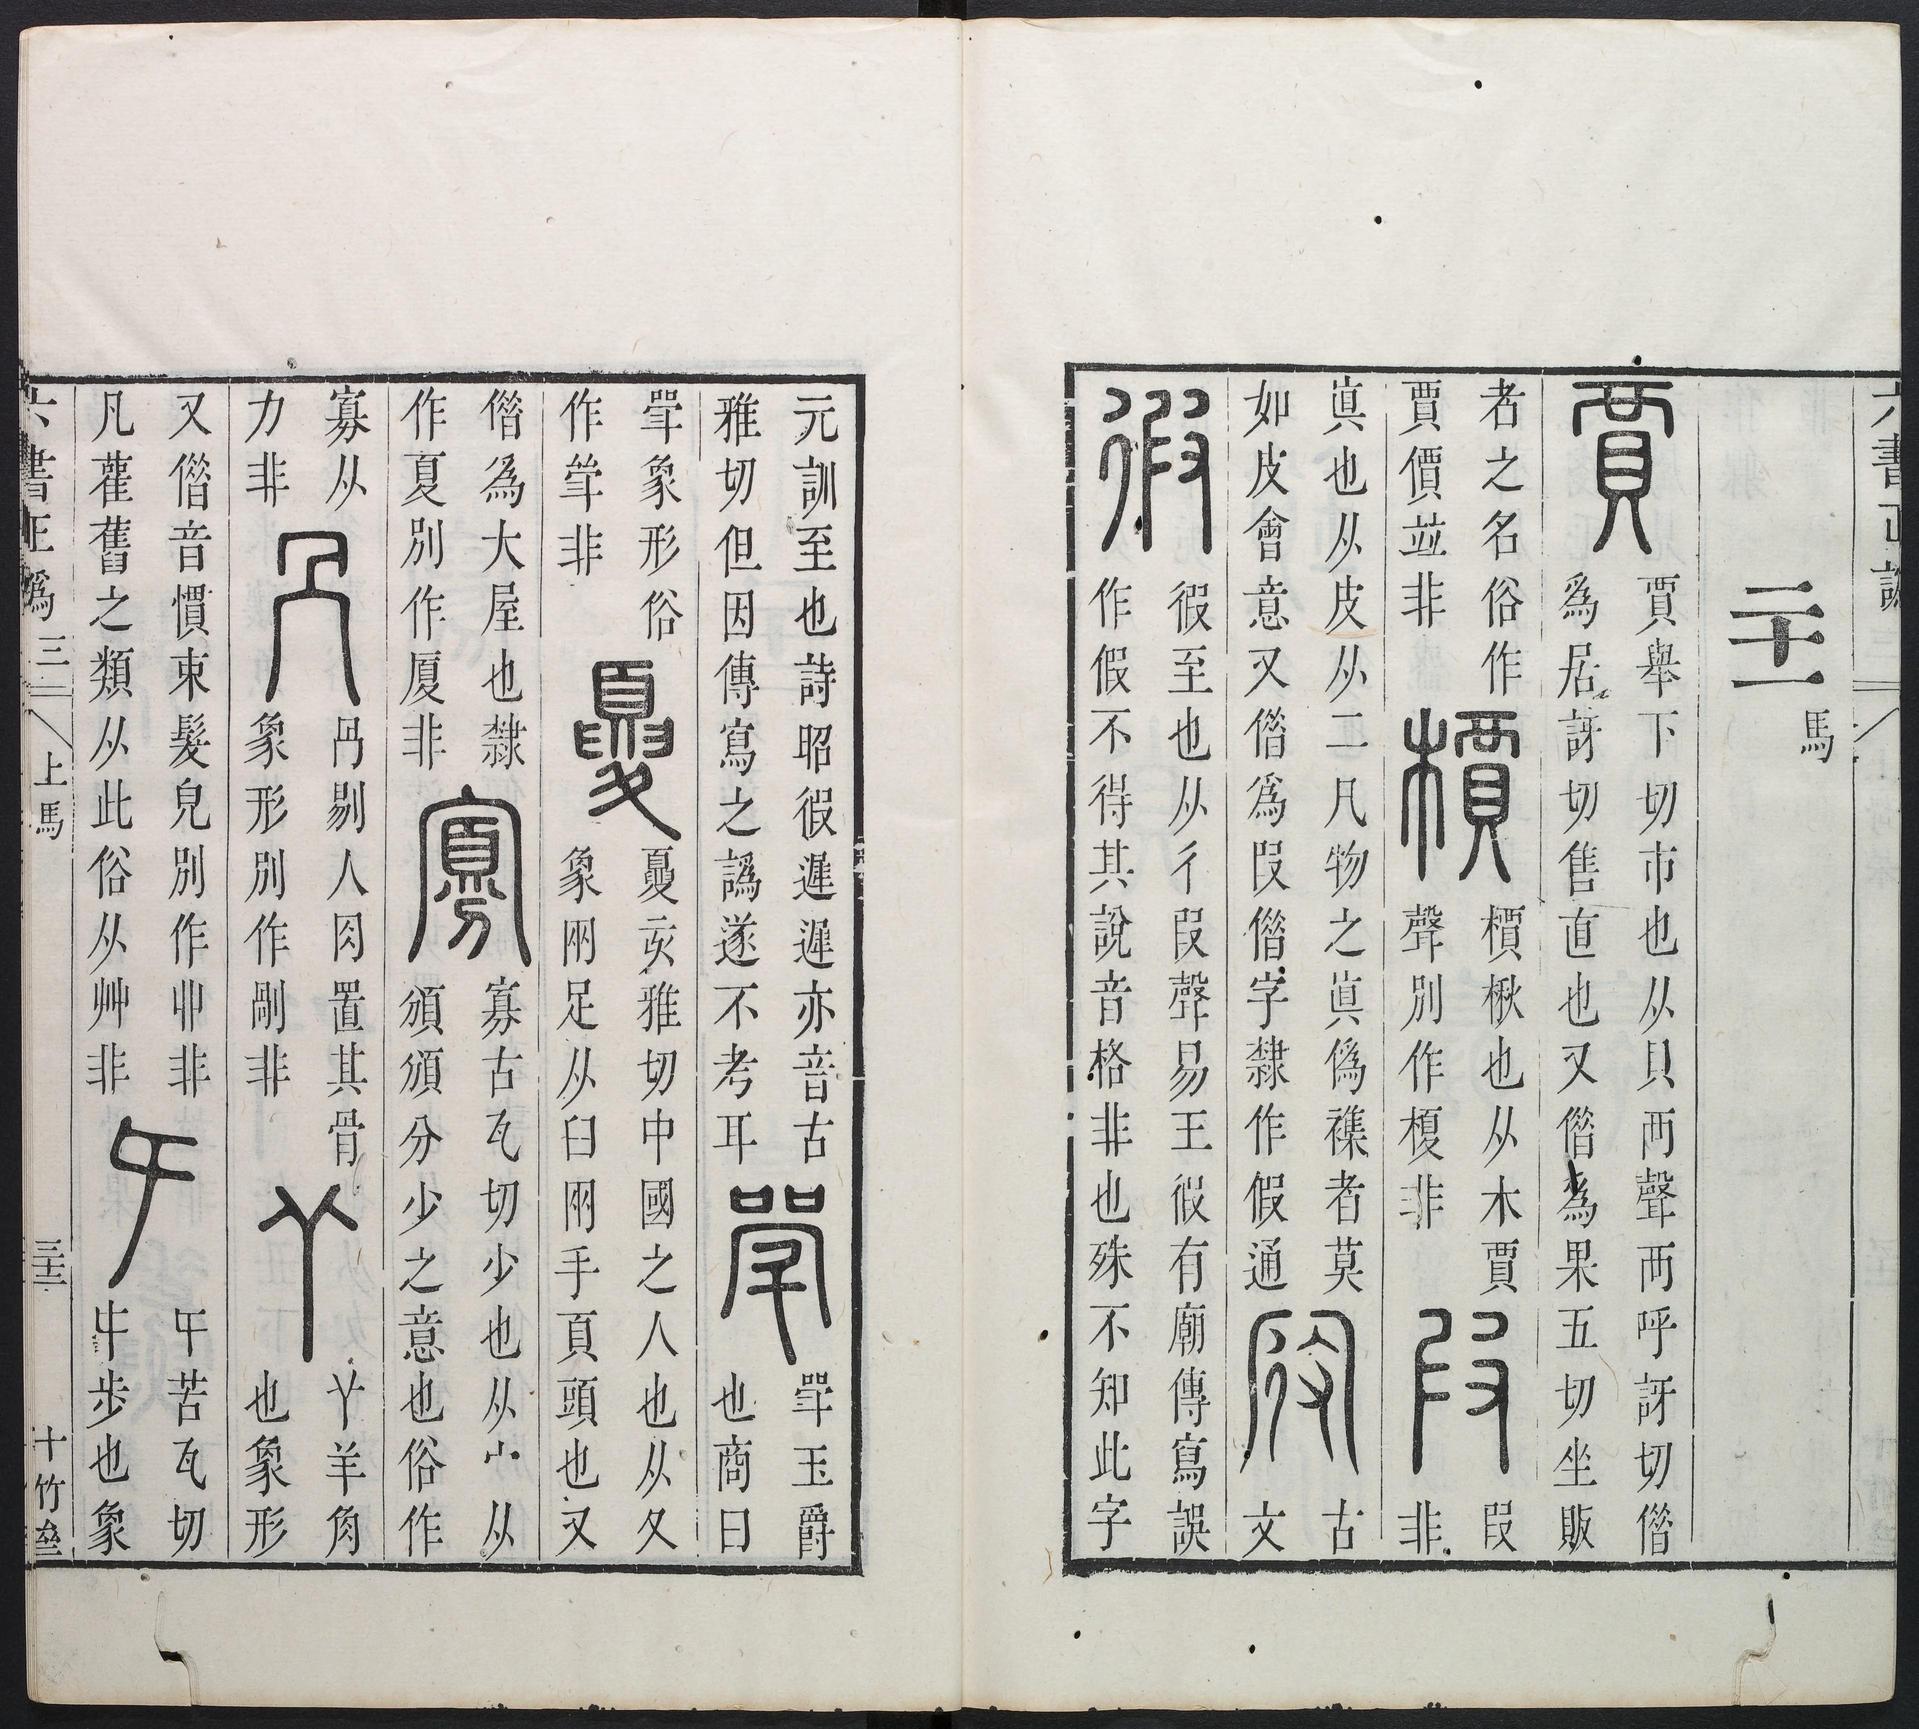 六書正譌
二十一馬
賈
賈舉下切市也从貝襾聲襾呼訝切借
爲居訝切售直也又借爲果五切坐販
者之名俗作
賈價並非
檟
檟楸也从木賈
聲別作榎非
叚
叚
非
眞也从皮从二凡物之眞僞襍者莫
如皮會意又借爲叚借字隸作假通
古
文
徦
徦至也从彳叚聲易王徦有廟傳寫誤
作假不得其說音格非也殊不知此字
元訓至也詩昭徦遟遟亦音古
雅切但因傳寫之譌遂不考耳
斝
斝玉爵
也商曰
斝象形俗
作斚非
夓
夓亥雅切中國之人也从夊
象㒳足从臼㒳手頁頭也又
借爲大屋也隸
作夏別作厦非
寡
寡古瓦切少也从宀从
頒頒分少之意也俗作
寡从
力非
冎
冎剔人肉置其骨
象形別作剮非
𦫳
𦫳羊角
也象形
又借音慣束髮皃別作丱非
凡雚舊之類从此俗从艸非
㐄
㐄苦瓦切
步也象
六書正譌 三 上馬 十竹齋